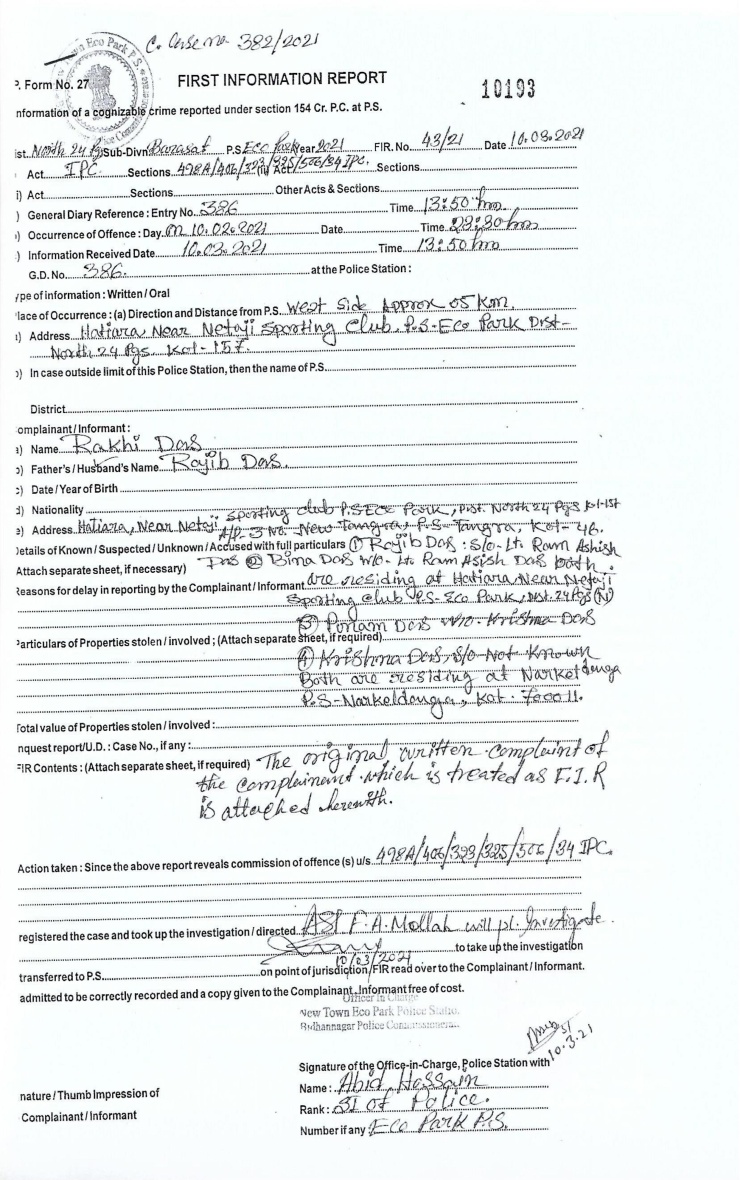 C. Case no 382/2021
Town Eco Park P.S.
P. Form No. 27
FIRST INFORMATION REPORT
10193
nformation of a cognizable crime reported under section 154 Cr. P.C. at P.S.
ist. North 24 Pgs Sub-Divn Barasat P.S Eco Park Year 2021 FIR. No. 43/21 Date 10.03.2021
Act IPC Sections 498A/406/323/325/506/34 IPC. (ii) Act Sections
i) Act Sections Other Acts & Sections
) General Diary Reference : Entry No. 386 Time 13:50 hrs
) Occurrence of Offence : Day on 10.02.2021 Date Time 23:30 hrs
) Information Received Date 10.03.2021 Time 13:50 hrs
G.D. No. 386. at the Police Station :
ype of information : Written / Oral
lace of Occurrence : (a) Direction and Distance from P.S. West Side Approx 05 Km.
) Address Hatiara, Near Netaji Sporting Club, P.S-Eco Park Dist-
North 24 Pgs. Kol-157.
) In case outside limit of this Police Station, then the name of P.S.
District
omplainant / Informant :
) Name Rakhi Das
) Father's / Husband's Name Rajib Das.
) Date / Year of Birth
) Nationality
Sporting club P.S Eco Park, Dist. North 24 Pgs Kol-157
e) Address Hatiara, Near Netaji
A/P- 3 No. New Tangra, P.S- Tangra, Kol-46.
Details of Known / Suspected / Unknown / Accused with full particulars (1) Rajib Das : S/o- Lt. Ram Ashish
Attach separate sheet, if necessary) Das (2) Bina Das W/o- Lt. Ram Asish Das both
Reasons for delay in reporting by the Complainant / Informant are residing at Hatiara, Near Netaji
Sporting Club P.S- Eco Park, Dist. 24 Pgs (N)
(3) Ponam Das W/o- Krishna Das
Particulars of Properties stolen / involved ; (Attach separate sheet, if required)
(4) Krishna Das, S/o- Not Known
Both are residing at Narkeldanga
P.S- Narkeldanga, Kol- 700011.
Total value of Properties stolen / involved :
nquest report / U.D. : Case No., if any :
FIR Contents : (Attach separate sheet, if required) The original written complaint of
the complainant which is treated as F.I.R
is attached herewith.
Action taken : Since the above report reveals commission of offence (s) u/s. 498A/406/323/325/506/34 IPC.
registered the case and took up the investigation / directed ASI F. A. Mollah will pl. Investigate.
to take up the investigation
10/03/2021
transferred to P.S. on point of jurisdiction/FIR read over to the Complainant / Informant.
admitted to be correctly recorded and a copy given to the Complainant, Informant free of cost.
Officer In Charge
New Town Eco Park Police Statio
Bidhannagar Police Commissionera
SI
10.3.21
Signature of the Office-in-Charge, Police Station with
Name : Abid Hossain
nature / Thumb Impression of
Rank : SI of Police.
Complainant / Informant
Number if any Eco Park P.S.